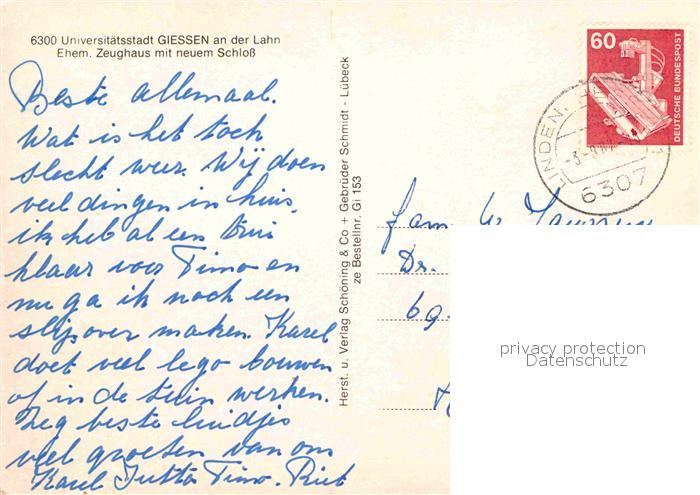 6300 Universitätsstadt GIESSEN an der Lahn
Ehem. Zeughaus mit neuem Schloß
Beste allemaal.
Wat is het toch
slecht weer. Wij doen
veel dingen in huis,
ik heb al een trui
klaar voor Timo en
nu ga ik noch een
slipover maken. Karel
doet veel lego bouwen
of in de tuin werken.
Zeg beste luidjes
veel groeten van ons
Karel Jutta Timo. Riet
Herst. u. Verlag Schöning & Co + Gebrüder Schmidt - Lübeck
ze Bestellnr. Gi 153
60
DEUTSCHE BUNDESPOST
LINDEN, HE
6307
fam
Dr.
69.
privacy protection
Datenschutz